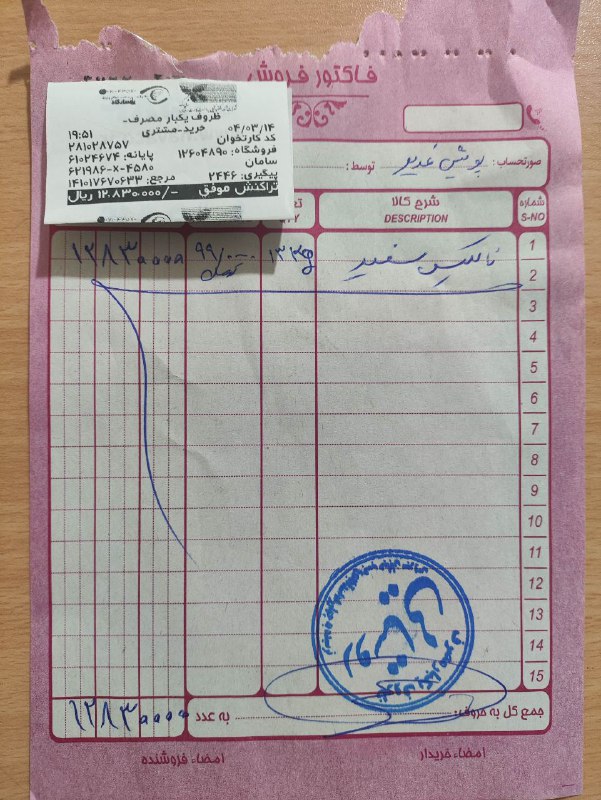 فاکتور فروش
ظروف یکبار مصرف-
۰۴/۰۳/۱۴ خرید-مشتری ۱۹:۵۱
کد کارتخوان ۲۸۱۰۲۸۷۵۷
فروشگاه: ۱۲۶۰۴۸۹۰ پایانه: ۶۱۰۲۴۶۷۴
سامان ۶۲۱۹۸۶-X-۴۵۸۰
پیگیری: ۲۴۴۶ مرجع: ۱۴۱۰۱۷۶۷۰۶۳۳
تراکنش موفق ۱۲،۸۳۰،۰۰۰/- ریال
صورتحساب: پوشش غدیر توسط:
شماره شرح کالا
S-NO DESCRIPTION
1 ۱۲۸۳۰۰۰۰
2 سفید
3
4
5
6
7
8
9
10
11
12
13
14
15
جمع کل به حروف: به عدد ۱۲۸۳۰۰۰۰
امضاء خریدار امضاء فروشنده